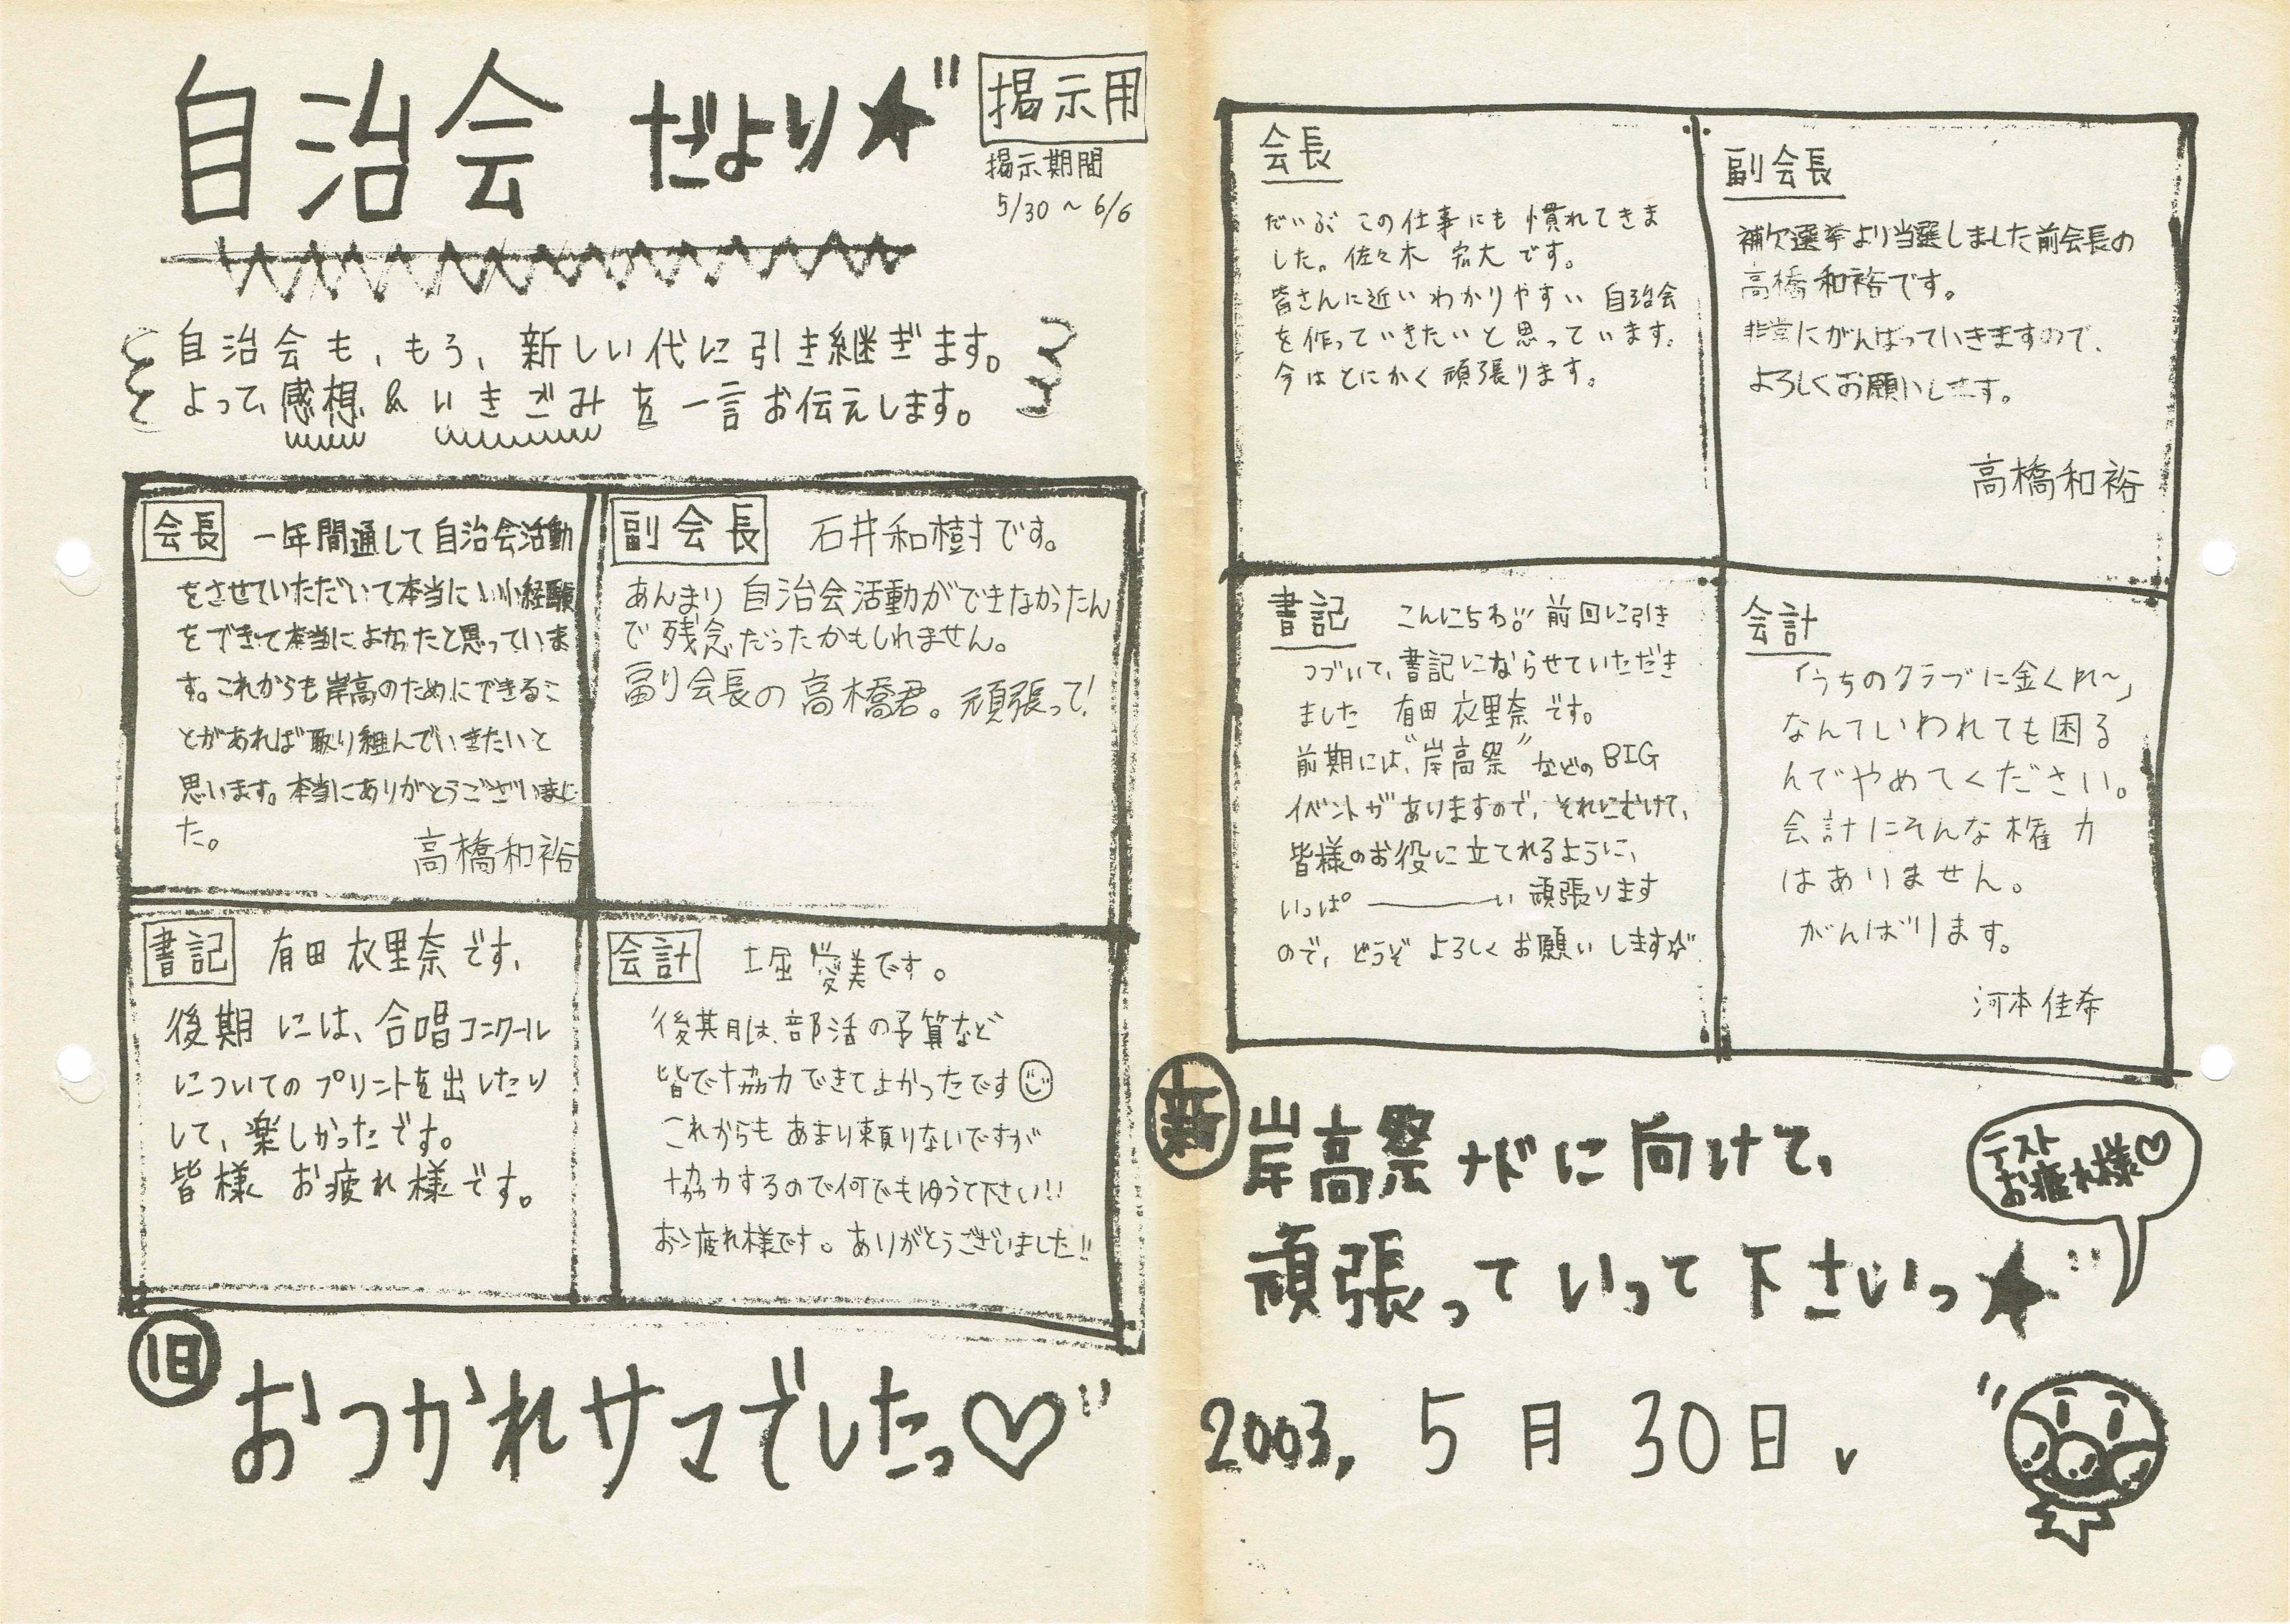 自治会だより★
掲示用
掲示期間
5/30～6/6
自治会も、もう、新しい代に引き継ぎます。
よって、感想&いきごみを一言お伝えします。
会長 一年間通して自治会活動
をさせていただいて本当にいい経験
をできて本当によかったと思っていま
す。これからも岸高のためにできるこ
とがあれば取り組んでいきたいと
思います。本当にありがとうございまし
た。
高橋和裕
副会長 石井和樹です。
あんまり自治会活動ができなかったん
で残念だったかもしれません。
副会長の高橋君。頑張って!
書記 有田衣里奈です、
後期には、合唱コンクール
についてのプリントを出したり
して、楽しかったです。
皆様お疲れ様です。
会計 堀愛美です。
後期は、部活の予算など
皆で協力できてよかったです☺
これからもあまり頼りないですが
協力するので何でもゆうて下さい!!
お疲れ様です。ありがとうございました!!
旧
おつかれサマでしたっ♡
会長
だいぶこの仕事にも慣れてきま
した。佐々木宏大です。
皆さんに近いわかりやすい自治会
を作っていきたいと思っています。
今はとにかく頑張ります。
副会長
補欠選挙より当選しました前会長の
高橋和裕です。
非常にがんばっていきますので、
よろしくお願いします。
高橋和裕
書記 こんにちわ!! 前回に引き
つづいて、書記にならせていただき
ました 有田衣里奈です。
前期には、“岸高祭”などのBIG
イベントがありますので、それにむけて、
皆様のお役に立てれるように、
いっぱ―――い頑張ります
ので、どうぞよろしくお願いします☆
会計
「うちのクラブに金くれ～」
なんていわれても困る
んでやめてください。
会計にそんな権力
はありません。
がんばります。
河本佳希
新
岸高祭ナドに向けて、
頑張っていって下さいっ★
テスト
お疲れ様♡
2003, 5月30日、